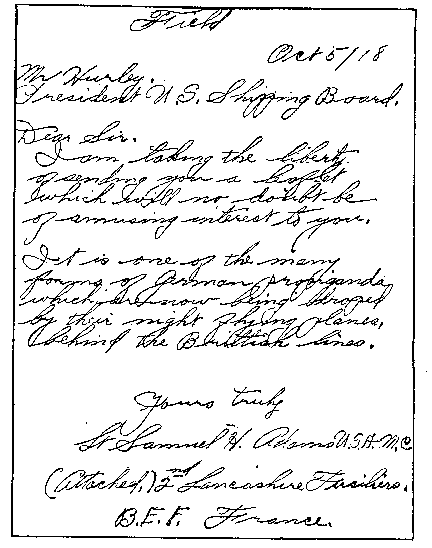 Field
Oct 5/18
Mr Hurley.
President U.S. Shipping Board.
Dear Sir.
I am taking the liberty
of sending you a leaflet
which will no doubt be
of amusing interest to you.
It is one of the many
forms of German propiganda
which are now being droped
by their night flying planes,
behind the Brittish lines.
Yours truly
Lt Samuel H. Adams U.S.A.M.C
(Attached,) 2nd Lancashire Fusiliers.
B.E.F. France.